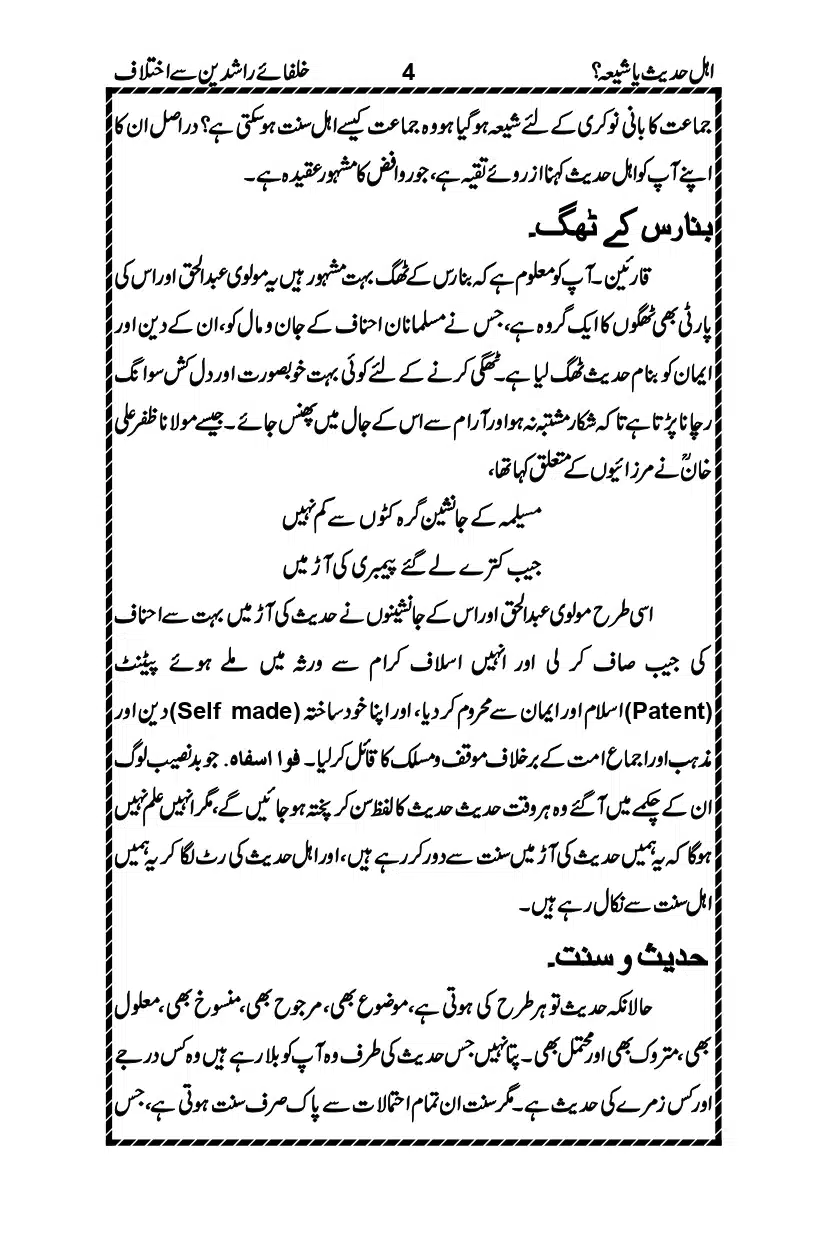 اہل حدیث یا شیعہ؟ 4 خلفائے راشدین سے اختلاف
جماعت کا بانی نوکری کے لئے شیعہ ہو گیا ہو وہ جماعت کیسے اہل سنت ہو سکتی ہے؟ دراصل ان کا
اپنے آپ کو اہل حدیث کہنا از روئے تقیہ ہے، جو روافض کا مشہور عقیدہ ہے۔
بنارس کے ٹھگ۔
قارئین۔ آپ کو معلوم ہے کہ بنارس کے ٹھگ بہت مشہور ہیں یہ مولوی عبدالحق اور اس کی
پارٹی بھی ٹھگوں کا ایک گروہ ہے، جس نے مسلمانان احناف کے جان و مال کو، ان کے دین اور
ایمان کو بنام حدیث ٹھگ لیا ہے۔ ٹھگی کرنے کے لئے کوئی بہت خوبصورت اور دل کش سوانگ
رچانا پڑتا ہے تا کہ شکار مشتبہ نہ ہو اور آرام سے اس کے جال میں پھنس جائے۔ جیسے مولانا ظفر علی
خانؒ نے مرزائیوں کے متعلق کہا تھا،
مسیلمہ کے جانشین گرہ کٹوں سے کم نہیں
جیب کترے لے گئے پیمبری کی آڑ میں
اسی طرح مولوی عبدالحق اور اس کے جانشینوں نے حدیث کی آڑ میں بہت سے احناف
کی جیب صاف کر لی اور انہیں اسلاف کرام سے ورثہ میں ملے ہوئے پیٹنٹ
(Patent) اسلام اور ایمان سے محروم کر دیا، اور اپنا خود ساختہ (Self made) دین اور
مذہب اور اجماع امت کے برخلاف موقف و مسلک کا قائل کر لیا۔ فوا اسفاہ. جو بدنصیب لوگ
ان کے چکمے میں آ گئے وہ ہر وقت حدیث حدیث کا لفظ سن کر پختہ ہو جائیں گے، مگر انہیں علم نہیں
ہوگا کہ یہ ہمیں حدیث کی آڑ میں سنت سے دور کر رہے ہیں، اور اہل حدیث کی رٹ لگا کر یہ ہمیں
اہل سنت سے نکال رہے ہیں۔
حدیث و سنت۔
حالانکہ حدیث تو ہر طرح کی ہوتی ہے، موضوع بھی، مرجوح بھی، منسوخ بھی، معلول
بھی، متروک بھی اور محتمل بھی۔ پتا نہیں جس حدیث کی طرف وہ آپ کو بلا رہے ہیں وہ کس درجے
اور کس زمرے کی حدیث ہے۔ مگر سنت ان تمام احتمالات سے پاک صرف سنت ہوتی ہے، جس